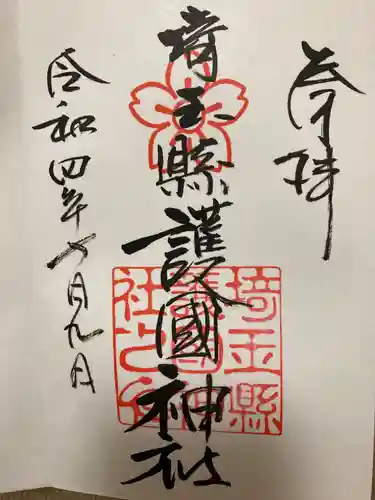 奉拝
埼玉縣護國神社
埼玉縣護國神社之印
令和四年七月九日